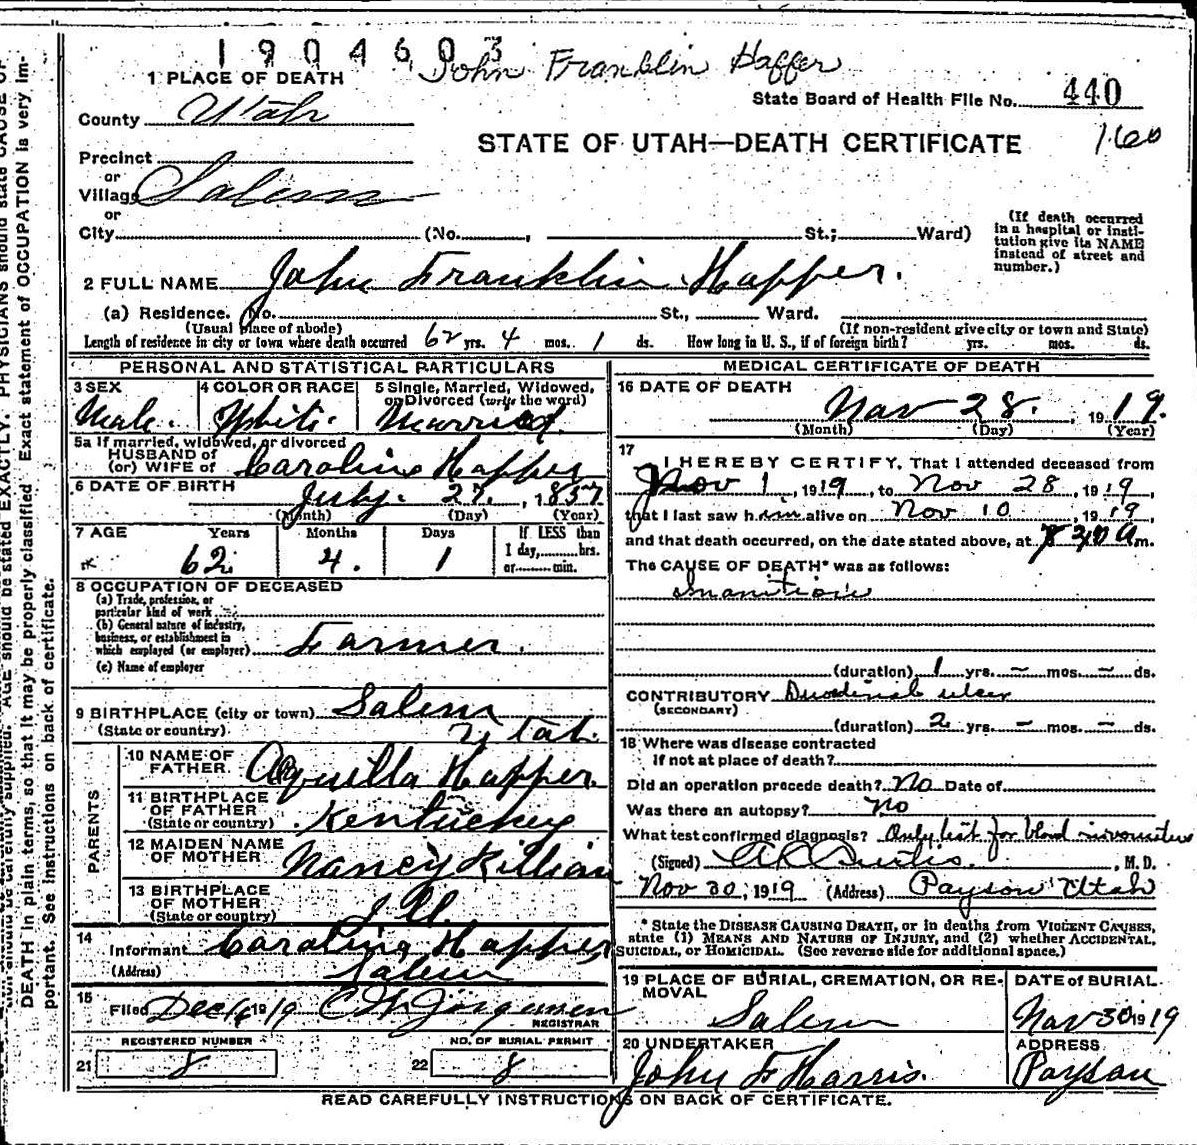 1904603 John Franklin Haffer
1 PLACE OF DEATH
State Board of Health File No. 440
County Utah
STATE OF UTAH—DEATH CERTIFICATE 160
Precinct
or
Village Salem
or
City (No. , St.; Ward)
(If death occurred in a hospital or institution give its NAME instead of street and number.)
2 FULL NAME John Franklin Happer.
(a) Residence. No. St., Ward.
(Usual place of abode) (If non-resident give city or town and State)
Length of residence in city or town where death occurred 62 yrs. 4 mos. 1 ds. How long in U. S., if of foreign birth? yrs. mos. ds.
PERSONAL AND STATISTICAL PARTICULARS
3 SEX Male. 4 COLOR OR RACE White. 5 Single, Married, Widowed, or Divorced (write the word) Married.
5a If married, widowed, or divorced
HUSBAND of
(or) WIFE of Caroline Happer
6 DATE OF BIRTH July. 27, 1857
(Month) (Day) (Year)
7 AGE Years Months Days If LESS than
62 4. 1 1 day, hrs.
or min.
8 OCCUPATION OF DECEASED
(a) Trade, profession, or
particular kind of work
(b) General nature of industry,
business, or establishment in
which employed (or employer) Farmer.
(c) Name of employer
9 BIRTHPLACE (city or town) Salem
(State or country) Utah.
PARENTS
10 NAME OF
FATHER Aquilla Happer.
11 BIRTHPLACE
OF FATHER
(State or country) Kentuckey
12 MAIDEN NAME
OF MOTHER Nancy Killian
13 BIRTHPLACE
OF MOTHER
(State or country) Ill.
14
Informant Caroline Happer
(Address) Salem
15
Filed Dec 1919
REGISTRAR
REGISTERED NUMBER NO. OF BURIAL PERMIT
21 8 22 8
MEDICAL CERTIFICATE OF DEATH
16 DATE OF DEATH
Nov 28. , 1919.
(Month) (Day) (Year)
17
I HEREBY CERTIFY, That I attended deceased from
Nov 1 , 1919 , to Nov 28 , 1919 ,
that I last saw him alive on Nov 10 , 1919
and that death occurred, on the date stated above, at 730 a m.
The CAUSE OF DEATH* was as follows:
Inanition
(duration) 1 yrs. – mos. – ds.
CONTRIBUTORY Duodenal ulcer
(SECONDARY)
(duration) 2 yrs. – mos. – ds.
18 Where was disease contracted
If not at place of death?
Did an operation precede death? No Date of
Was there an autopsy? No
What test confirmed diagnosis? Only test for blood in vomitus
(Signed) , M. D.
Nov 30, 1919 (Address) Payson Utah
* State the DISEASE CAUSING DEATH, or in deaths from VIOLENT CAUSES,
state (1) MEANS AND NATURE OF INJURY, and (2) whether ACCIDENTAL,
SUICIDAL, or HOMICIDAL. (See reverse side for additional space.)
19 PLACE OF BURIAL, CREMATION, OR RE-
MOVAL
Salem
DATE of BURIAL
Nov 30 1919
20 UNDERTAKER
John F Harris.
ADDRESS
Payson
READ CAREFULLY INSTRUCTIONS ON BACK OF CERTIFICATE.
AGE should be stated EXACTLY. PHYSICIANS should state CAUSE OF
DEATH in plain terms, so that it may be properly classified. Exact statement of OCCUPATION is very im-
portant. See instructions on back of certificate.